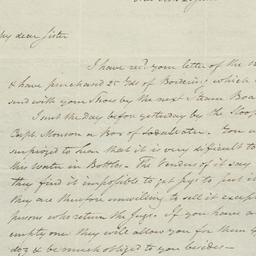 My dear Sister
I have recd. your letter of the 12
& have purchased 25 Yds of Bordering which
send with your Shoes by the next Steam Boa
I sent the day before yesterday by the Sloop
Capt. Monson a Box of Soda Water. You
surprized to hear that it is very difficult to
this Water in Bottles. The Venders of it say
they find it impossible to get jugs to suit
they are therefore unwilling to sell it except
persons who return the jugs. If you have
empty one they will allow you for them
doz & be much obliged to you besides—